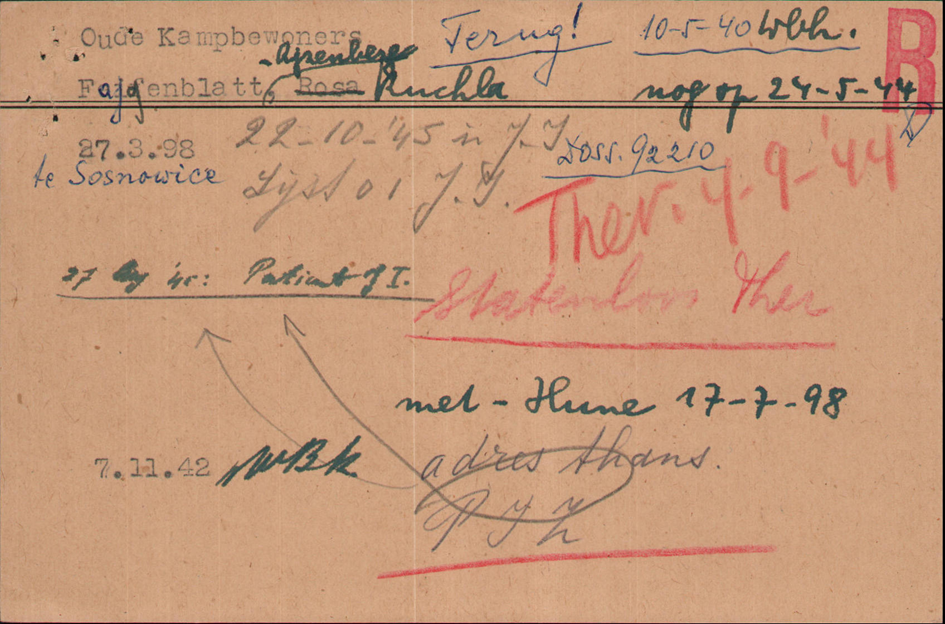 Oude Kampbewoners Terug! 10-5-40 Wbk. R
- Ajzenberg
Fajfenblatt, Rosa Ruchla nog op 24-5-44
27.3.98 22-10-'45 in J.I. Doss. 92210
te Sosnowice Lijst 01 J.I.
Ther. 4-9-'44
27 '45: Patient J I. Statenloos Ther
met - Hune 17-7-98
7.11.42 WBK adres thans.